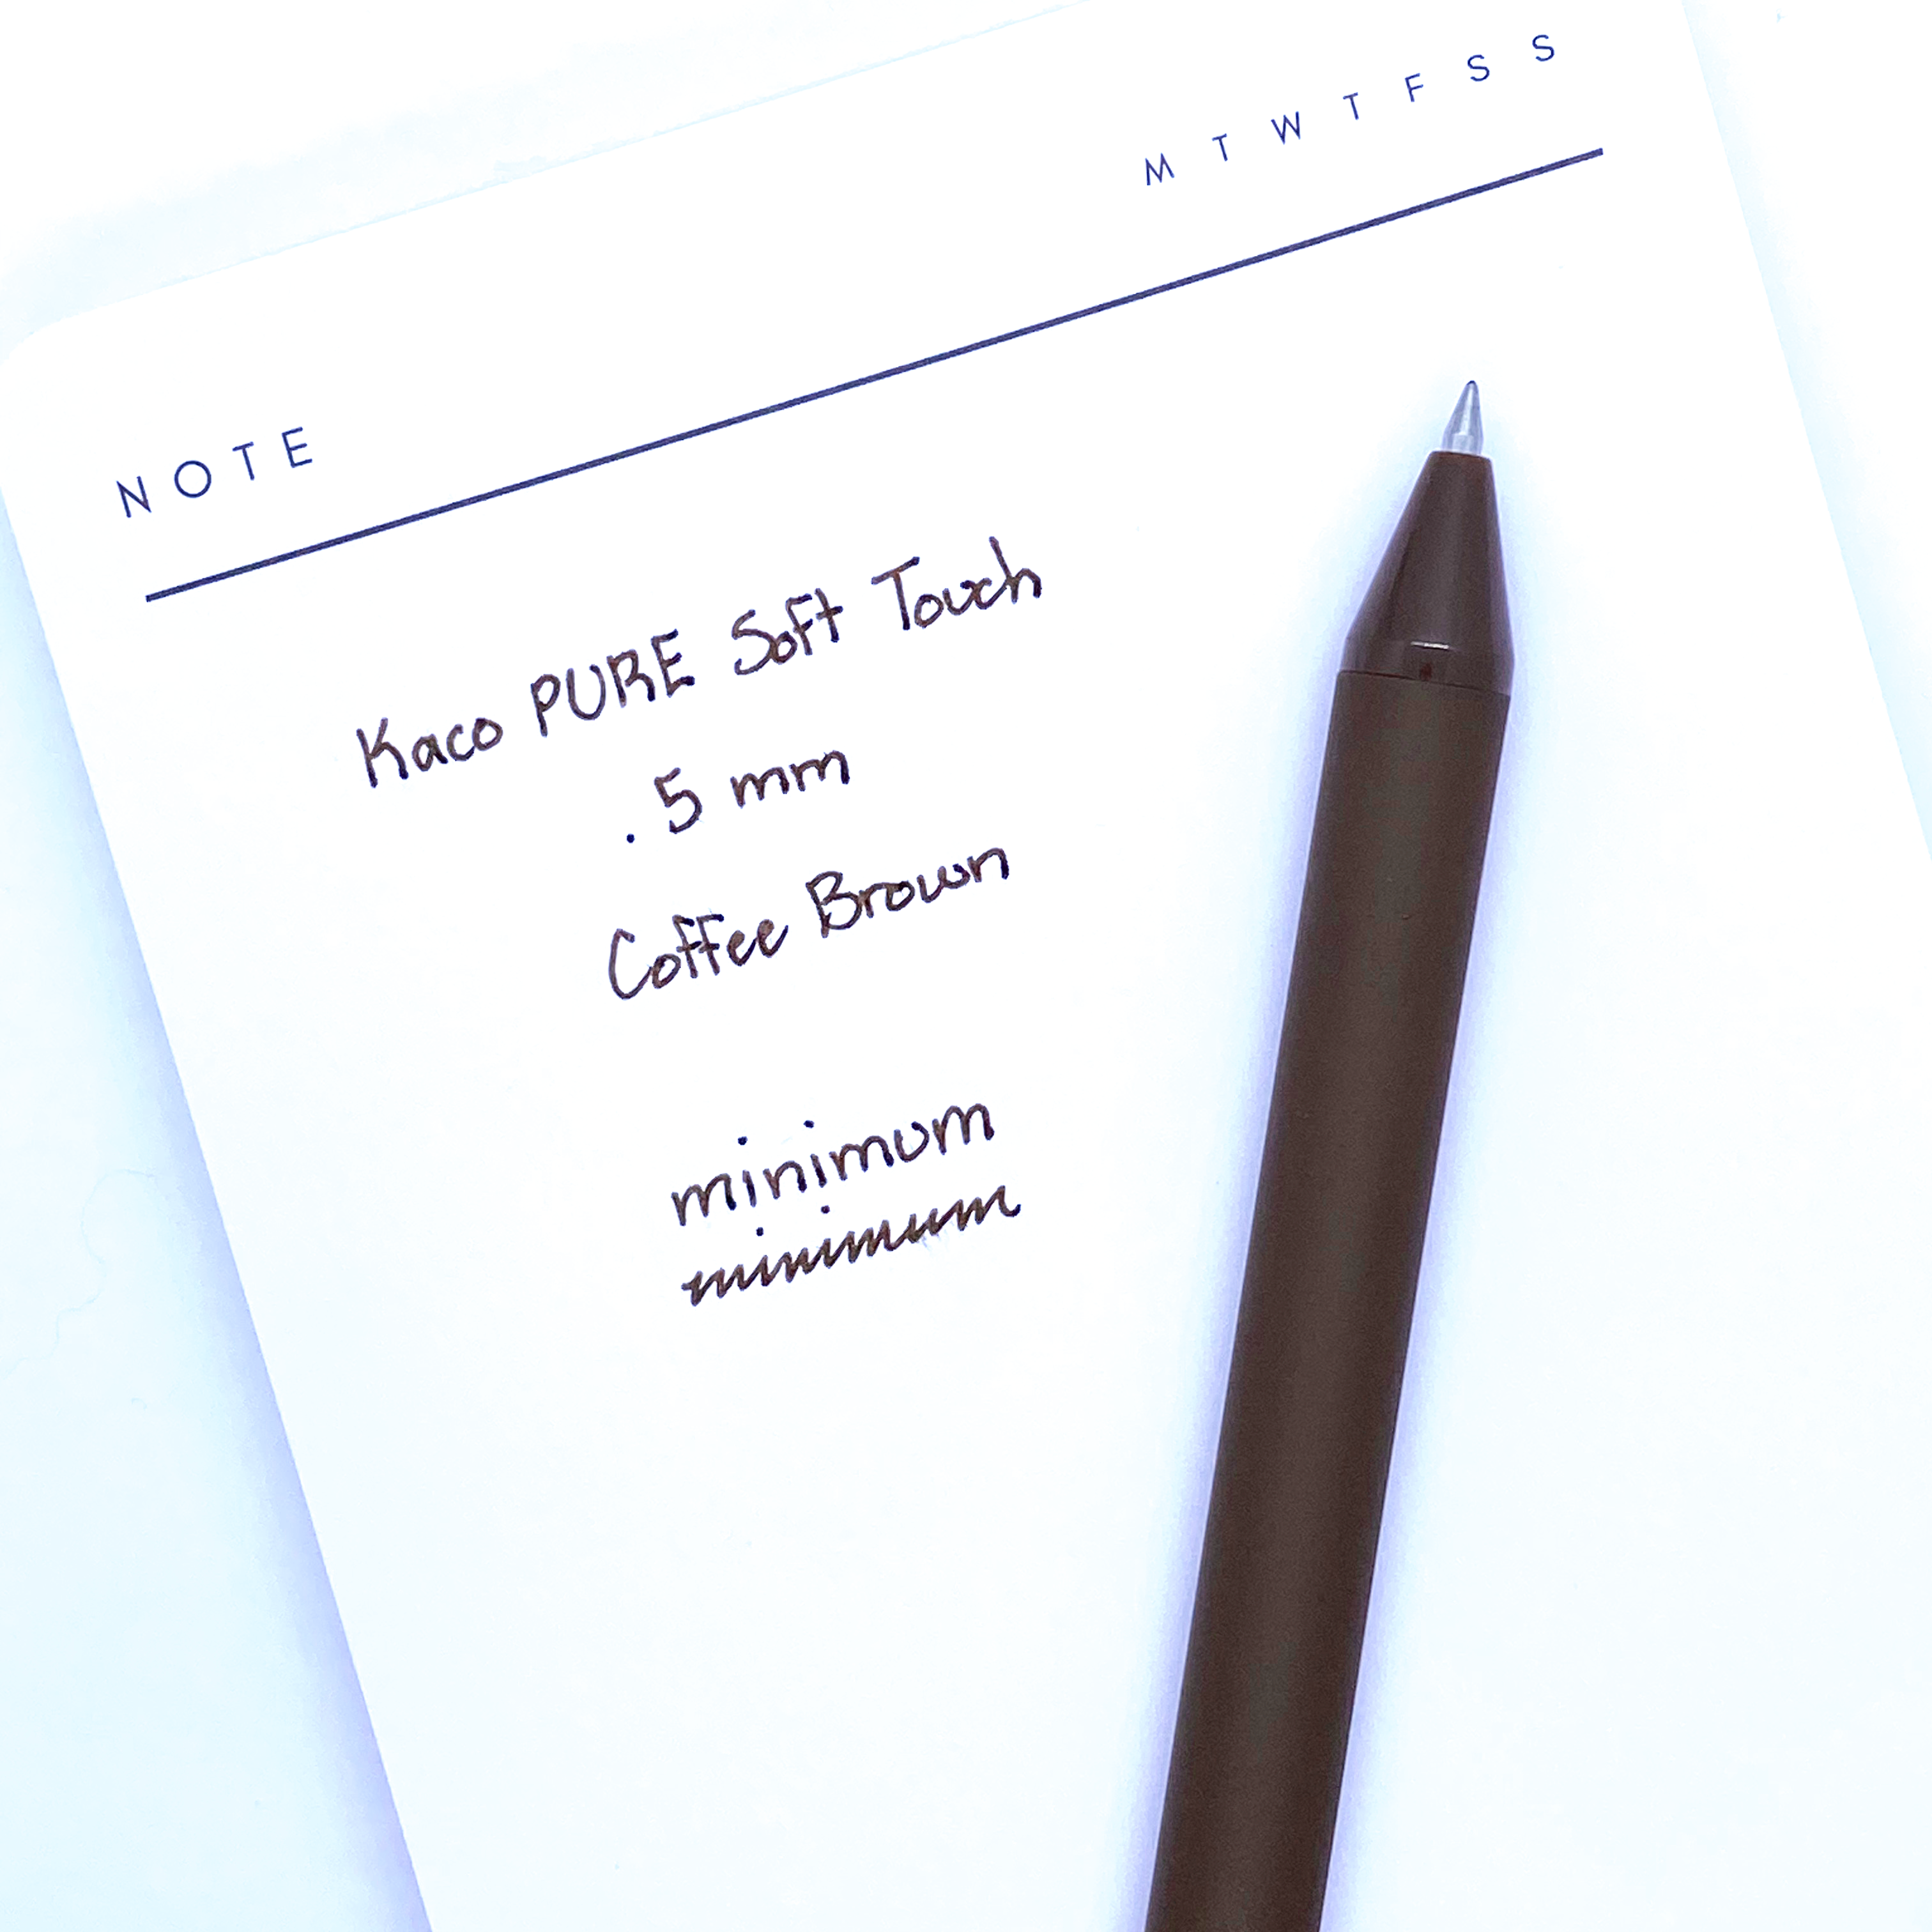 NOTE
M T W T F S S
Kaco PURE Soft Touch
.5 mm
Coffee Brown
minimum
minimum